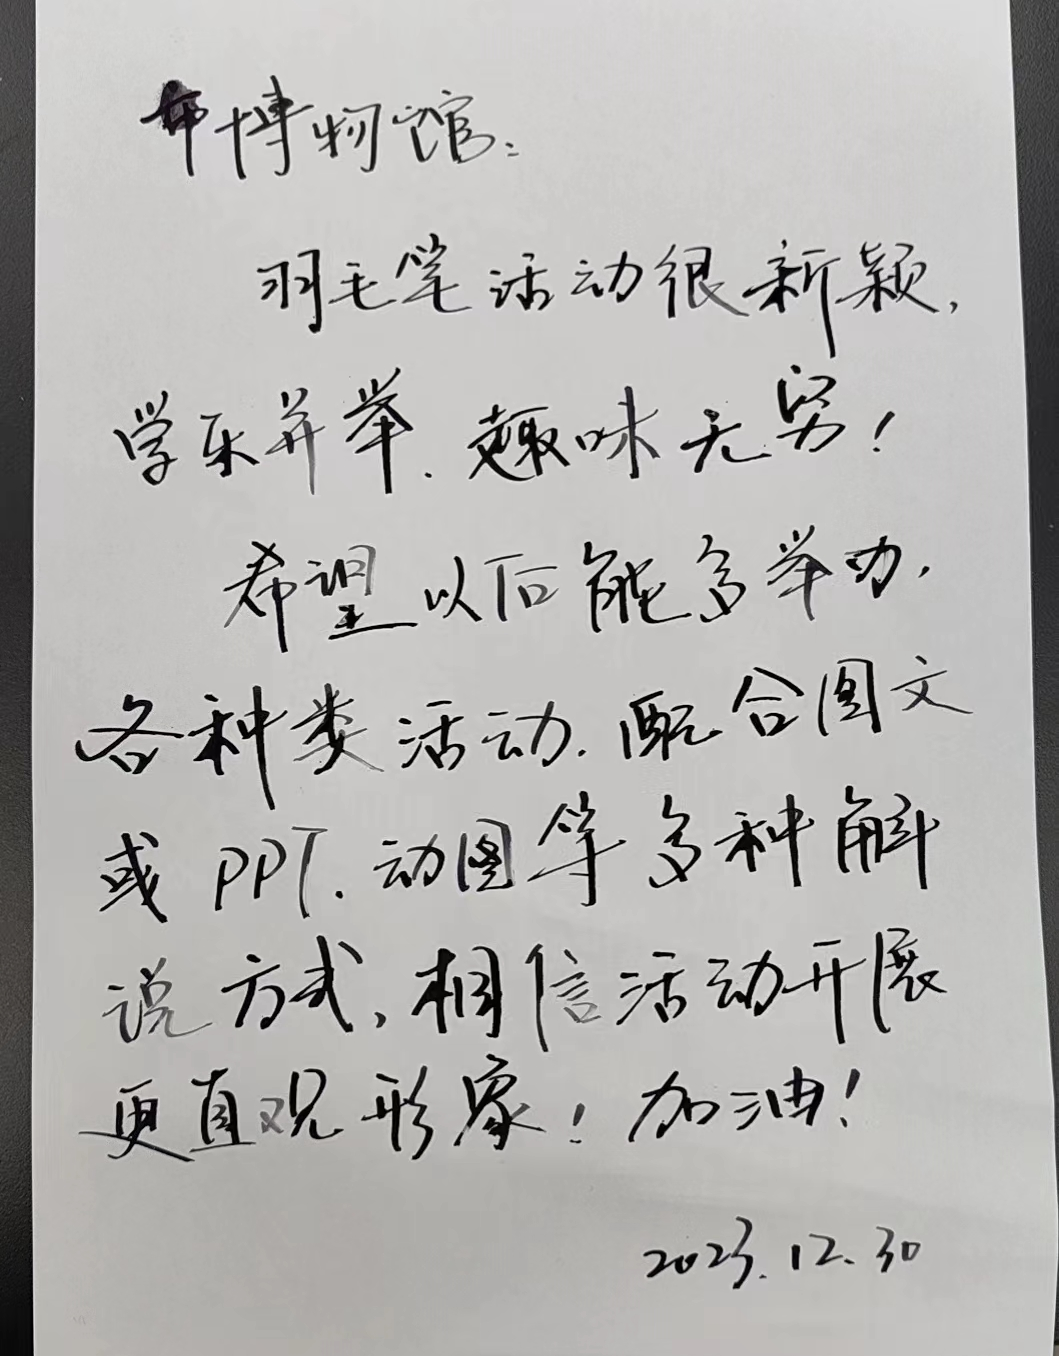 市博物馆：
羽毛笔活动很新颖，
学乐并举，趣味无穷！
希望以后能多举办，
各种类活动，配合图文
或PPT、动图等多种解
说方式，相信活动开展
更直观形象！加油！
2023.12.30